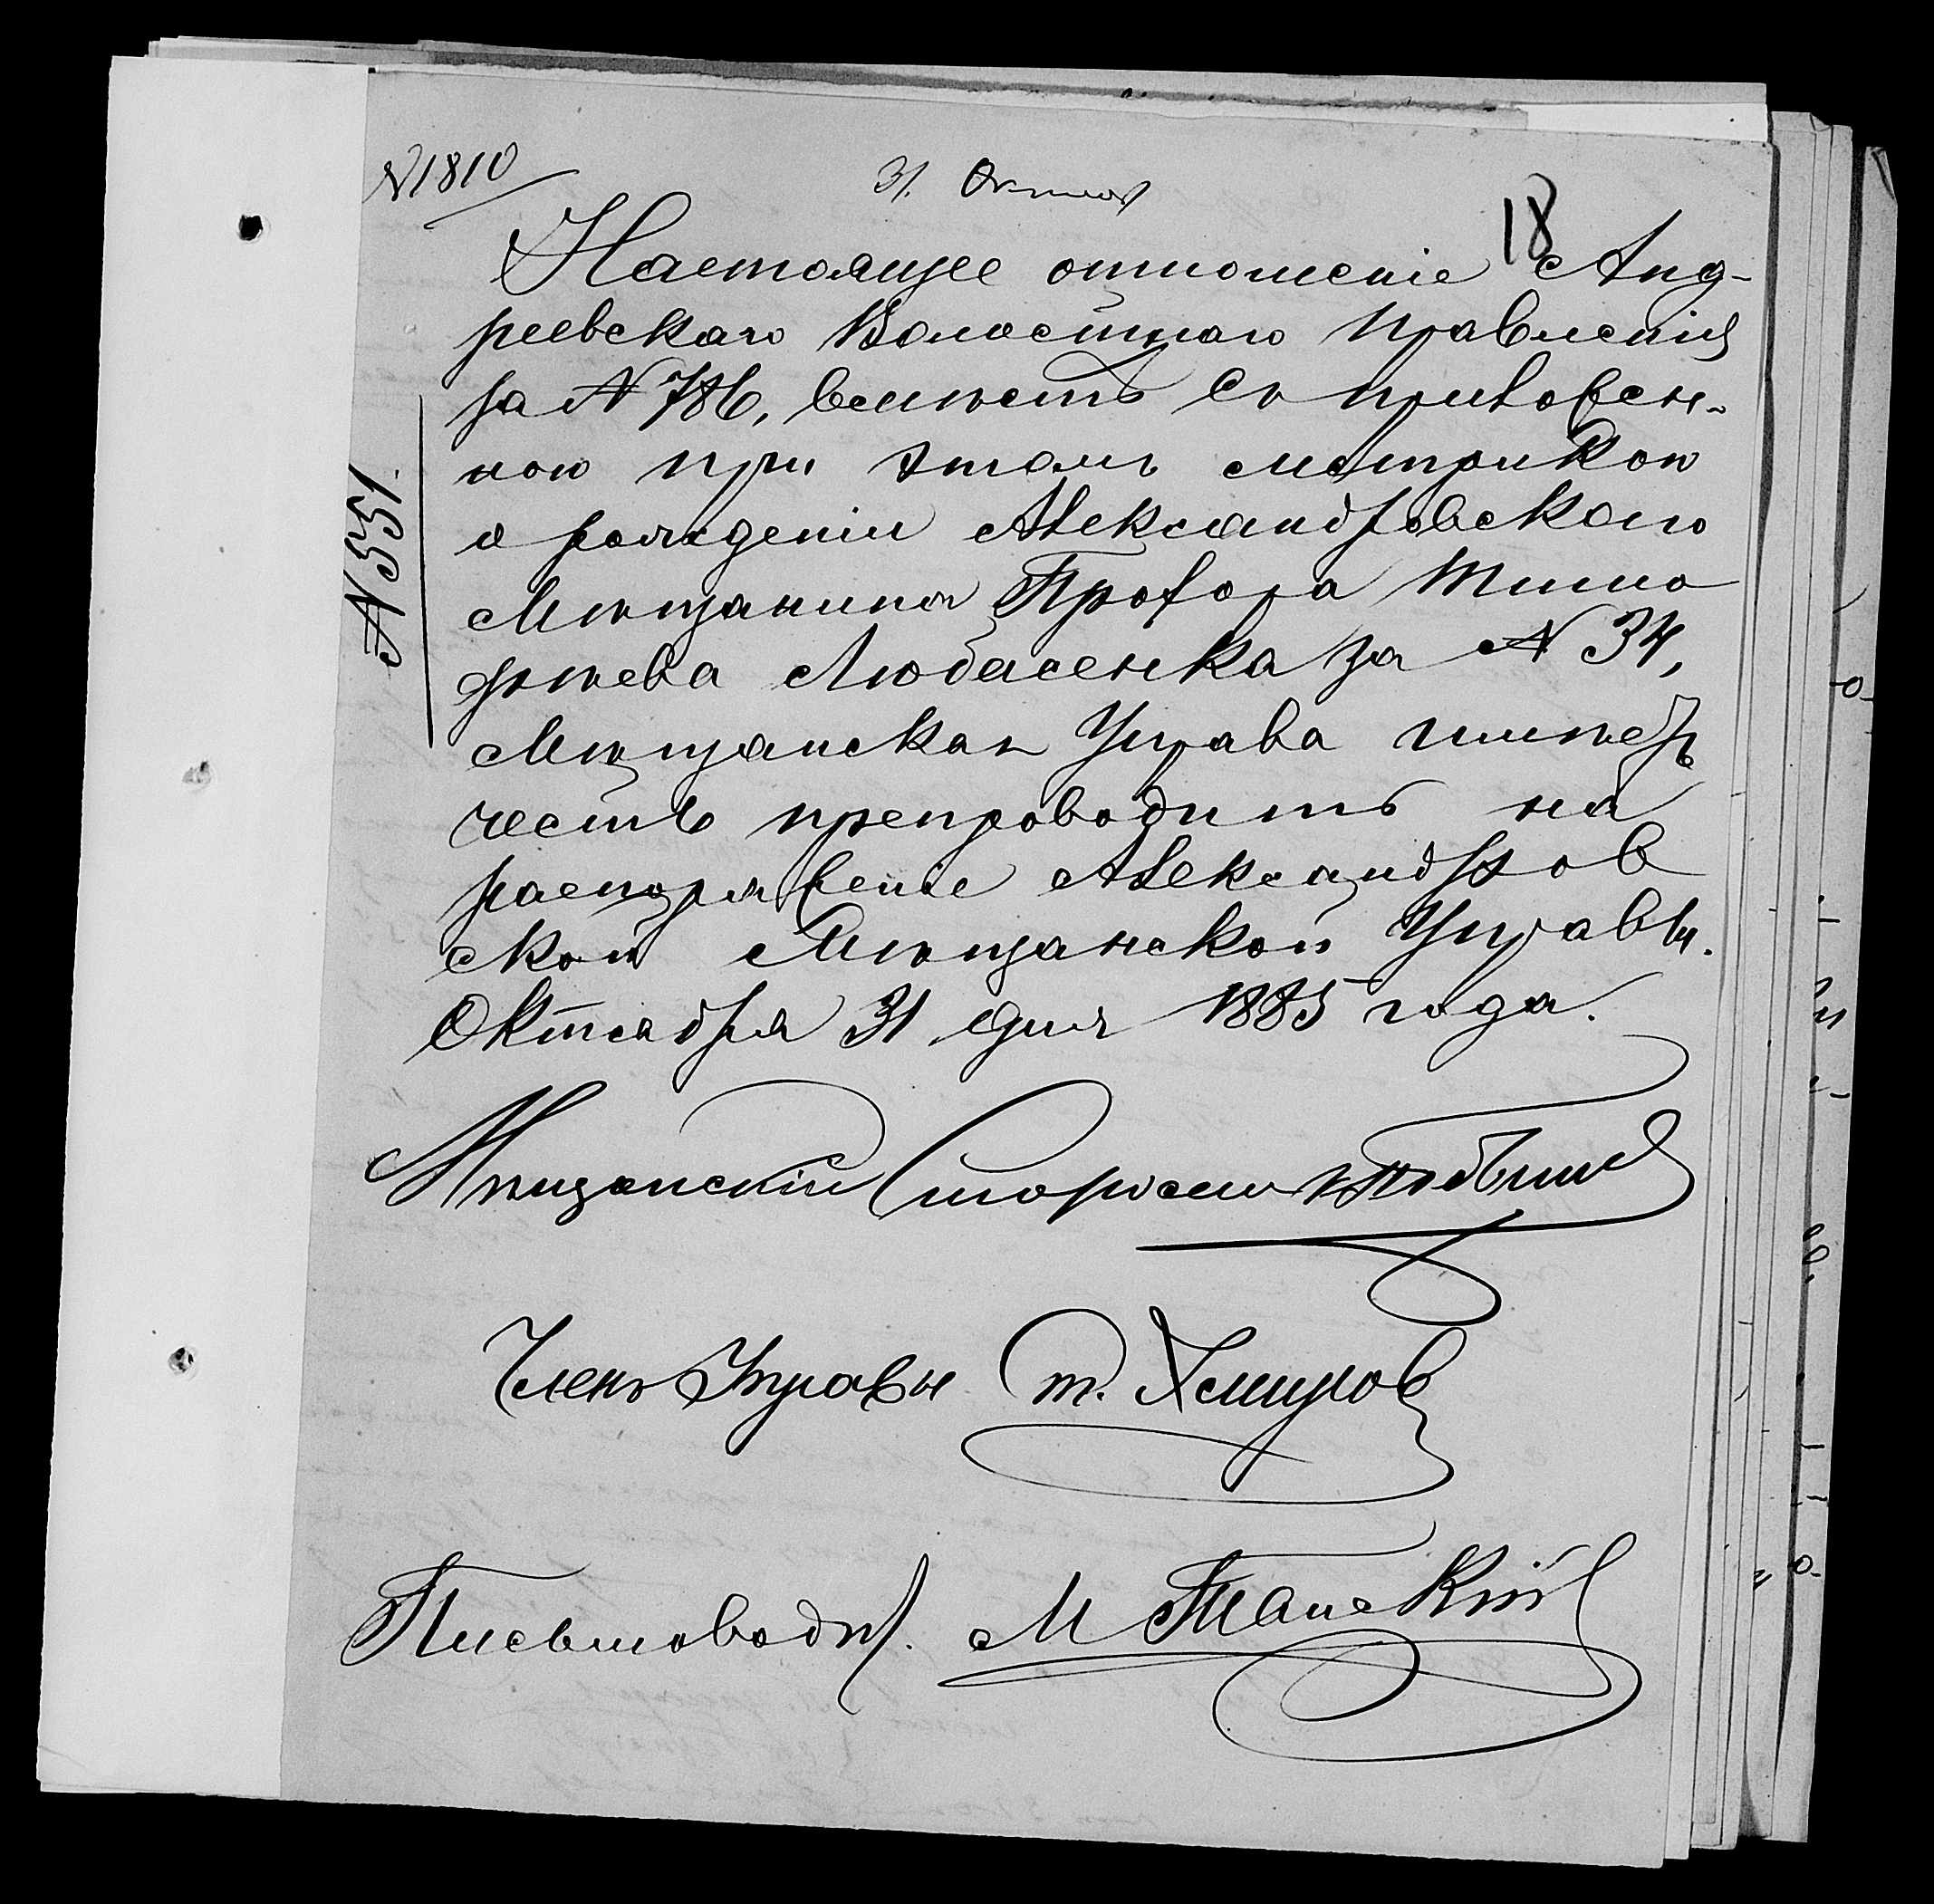 N 1810
31. Октяб
18
Настоящее отношеніе Анд-
реевскаго Волостнаго Правленія
за N 786, вмѣстѣ съ приложен-
ною при этомъ метрикою
о рожденіи Александровскаго
Мѣщанина Прохора Тимо
фѣева Любасенка за N 34,
Мѣщанская Управа имѣетъ
честь препроводить на
распоряженіе Александров
ской Мѣщанской Управы.
Октября 31 дня 1885 года.
N 551.
Мѣщанскій Староста
Членъ Управы Т.
Письмоводит. М